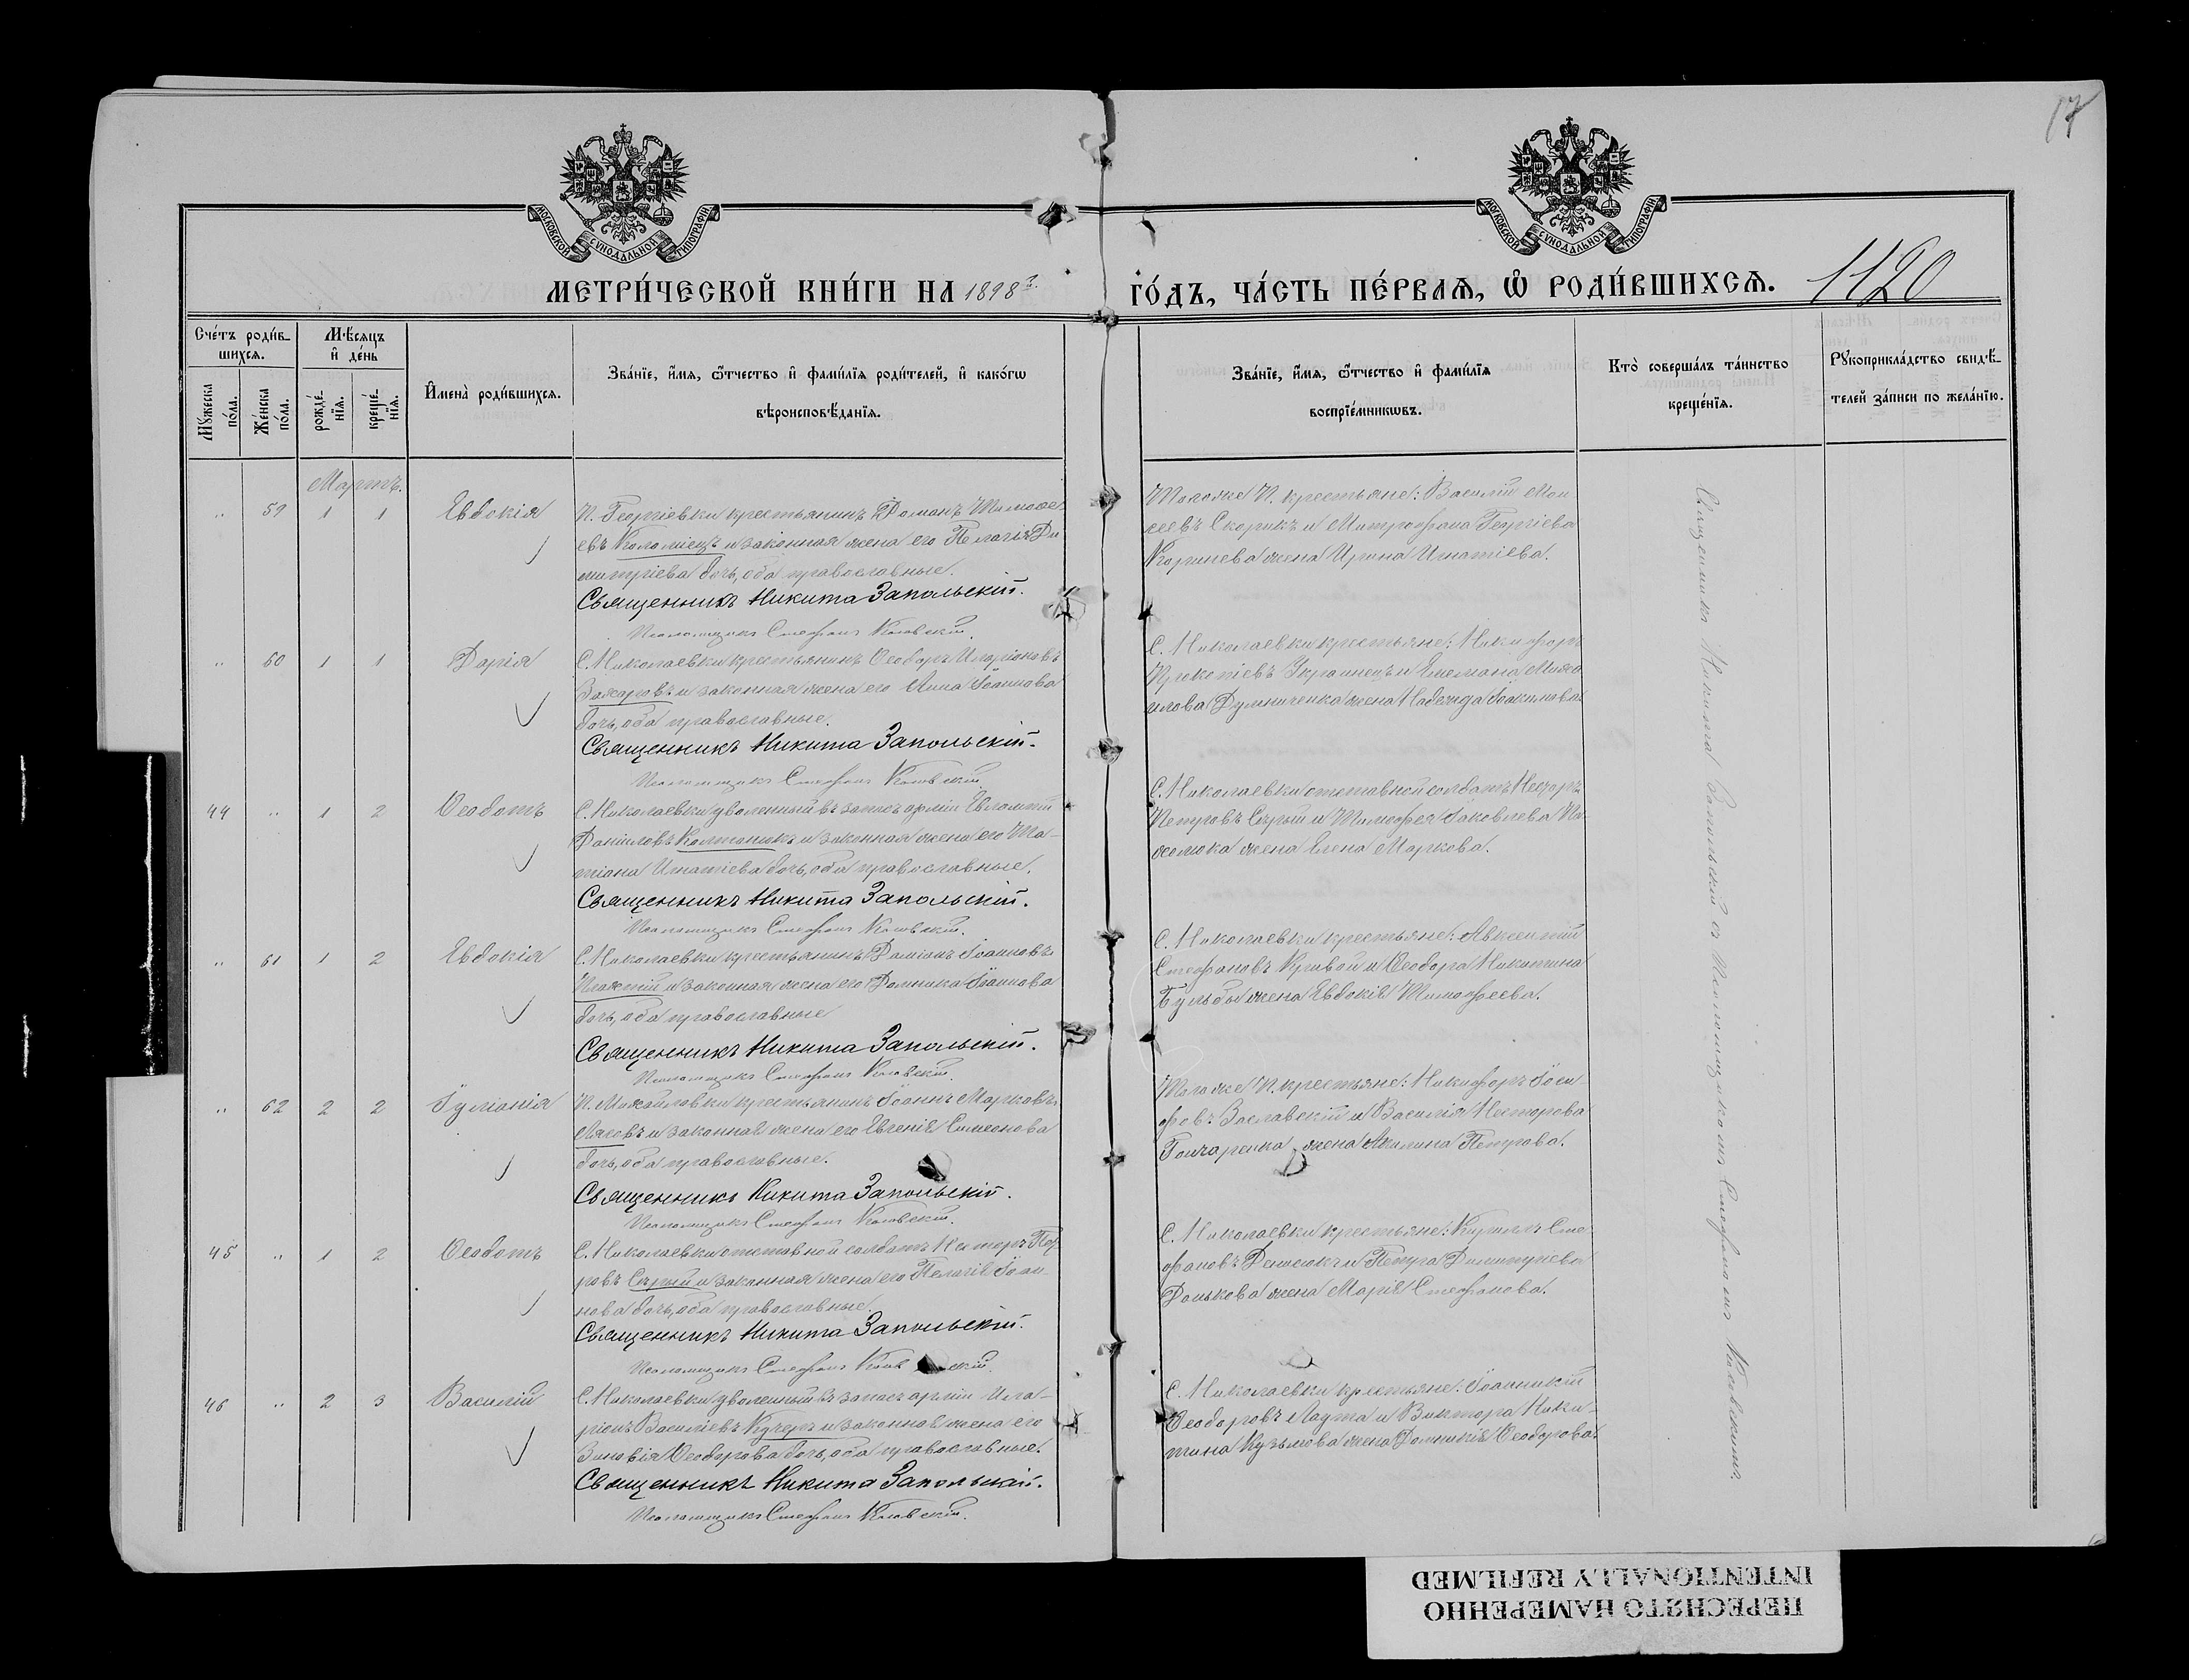 17
МОСКОВСКОЙ СѴНОДАЛЬНОЙ ТИПОГРАФІИ
МОСКОВСКОЙ СѴНОДАЛЬНОЙ ТИПОГРАФІИ
МЕТРИ́ЧЕСКОЙ КНИ́ГИ НА 1898 г. ГО́ДЪ, ЧА́СТЬ ПЕ́РВАѦ, Ѽ РОДИ́ВШИХСѦ.
1120
Сче́тъ роди́в-
шихся.
Мѣ́сяцъ
и҆ де́нь
Мꙋ́жеска
по́ла.
Же́нска
по́ла.
рожде́-
нїѧ.
креще́-
нїѧ.
И҆мена̀ роди́вшихсѧ.
Зва́нїе, и҆́мѧ, ѻ҆́тчество и҆ фами́лїѧ роди́телей, и҆ како́гѡ
вѣроисповѣ́данїѧ.
Зва́нїе, и҆́мѧ, ѻ҆́тчество и҆ фами́лїѧ
воспрїе́мникѡвъ.
Кто̀ соверша́лъ та́инство
креще́нїѧ.
Рꙋкоприкла́дство свидѣ́-
телей за́писи по жела́нїю.
Мартъ.
" 59 1 1 Евдокія
П. Георгіевки крестьянинъ Романъ Тимофе
евъ Коломіецъ и законная жена его Пелагія Ди
митріева дочь, оба православные.
Священникъ Никита Запольскій.
Псаломщикъ Стефанъ
Того же П. крестьяне: Василій Мои
сеевъ Скорикъ и Митрофана Георгіева
жена Ирина Игнатіева.
" 60 1 1 Дарія
С. Николаевки крестьянинъ Ѳеодоръ Иларіоновъ
Захаровъ и законная жена его Анна Іоаннова
дочь, оба православные.
Священникъ Никита Запольскій.
Псаломщикъ Стефанъ
С. Николаевки крестьяне: Никифоръ
Прокопіевъ Украинецъ и Емеліана Миха
илова жена Надежда Іоакимова
44 " 1 2 Ѳеодотъ
С. Николаевки уволенный въ запасъ арміи Евлампій
Даніиловъ и законная жена его Та-
тіана Игнатіева дочь, оба православные.
Священникъ Никита Запольскій.
Псаломщикъ Стефанъ
С. Николаевки отставной солдатъ Несторъ
Петровъ Сѣрый и Тимофея Іаковлева
жена Елена Маркова.
" 61 1 2 Евдокія
С. Николаевки крестьянинъ Даміанъ Іоанновъ
и законная жена его Домника Іоаннова
дочь, оба православные
Священникъ Никита Запольскій.
Псаломщикъ Стефанъ
С. Николаевки крестьяне: Авксентій
Стефановъ Кривой и Ѳеодора Никитина
Бульбы жена Евдокія Тимофеева.
" 62 2 2 Іуліанія
П. Михайловки крестьянинъ Іоаннъ Марковъ
Лясовъ и законная жена его Евгенія Симеонова
дочь, оба православные.
Священникъ Никита Запольскій.
Псаломщикъ Стефанъ
Того же П. крестьяне: Никифоръ Іоси-
фовъ Заславскій и Василія Несторова
Гончаренка жена Акилина Петрова.
45 " 1 2 Ѳеодотъ
С. Николаевки отставной солдатъ Несторъ Пет-
ровъ Сѣрый и законная жена его Пелагія Іоан-
нова дочь, оба православные.
Священникъ Никита Запольскій.
Псаломщикъ Стефанъ
С. Николаевки крестьяне: Кириллъ Сте
фановъ Денисюкъ и Петра Димитріева
Донькова жена Марія Стефанова.
46 " 2 3 Василій
С. Николаевки уволенный въ запасъ арміи Ила-
ріонъ Василіевъ Кучеръ и законная жена его
Зиновія Ѳеодорова дочь, оба православные.
Священникъ Никита Запольскій.
Псаломщикъ Стефанъ
С. Николаевки крестьяне: Іоанникій
Ѳеодоровъ Лаута и Виктора Ники-
тина Кузьмова жена Домникія Ѳеодорова.
Священникъ Никита Запольскій съ Псаломщикомъ Стефаномъ
ПЕРЕСНЯТО НАМЕРЕННО
INTENTIONALLY REFILMED